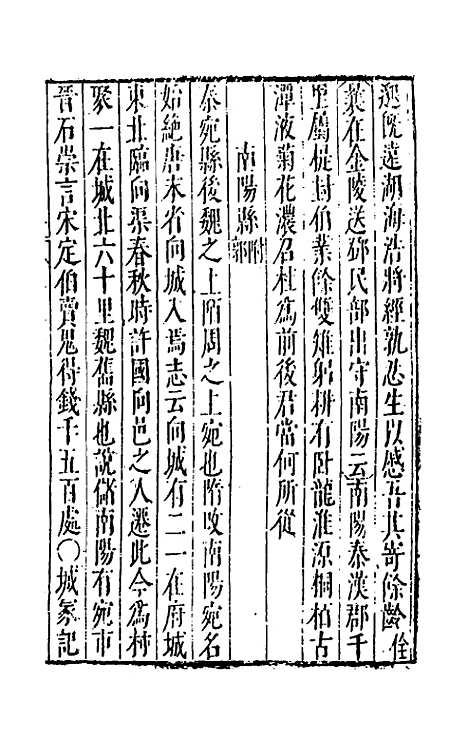 邈既遠湖海浩將經執忍生以感吾其寄餘齡佺
巽在金陵送邵民部出守南陽云南陽秦漢郡千
里屬提封伯業餘雙雉躬耕有卧龍淮源桐栢古
潭液菊花濃召杜為前後君當何所從
南陽縣附郭
秦宛縣後魏之上陌周之上宛也隋改南陽宛名
始絶唐末省向城入焉志云向城有二一在府城
東北臨向渠春秋時許國向邑之人遷此今為村
聚一在城北六十里魏舊縣也說儲南陽有宛市
晉石崇言宋定伯賣鬼得錢千五百處〇城冢記